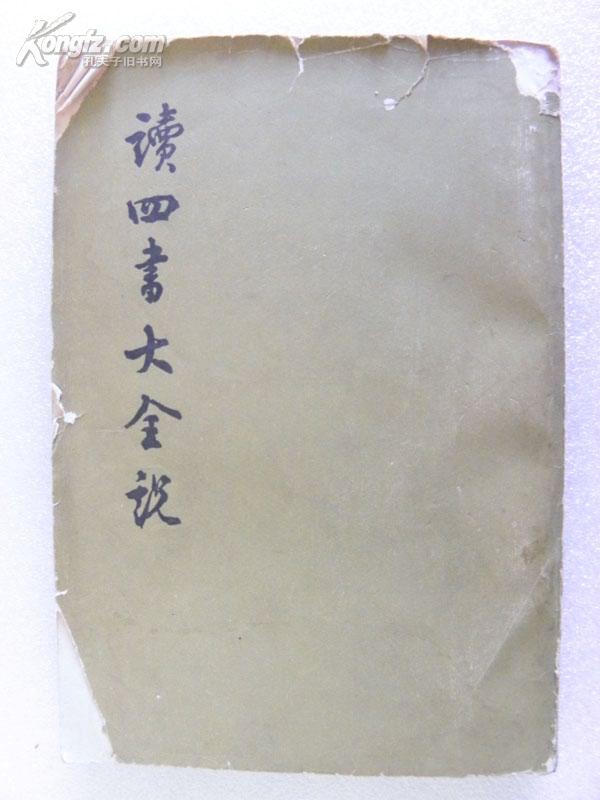 Kongfz.com
孔夫子旧书网
讀四書大全說